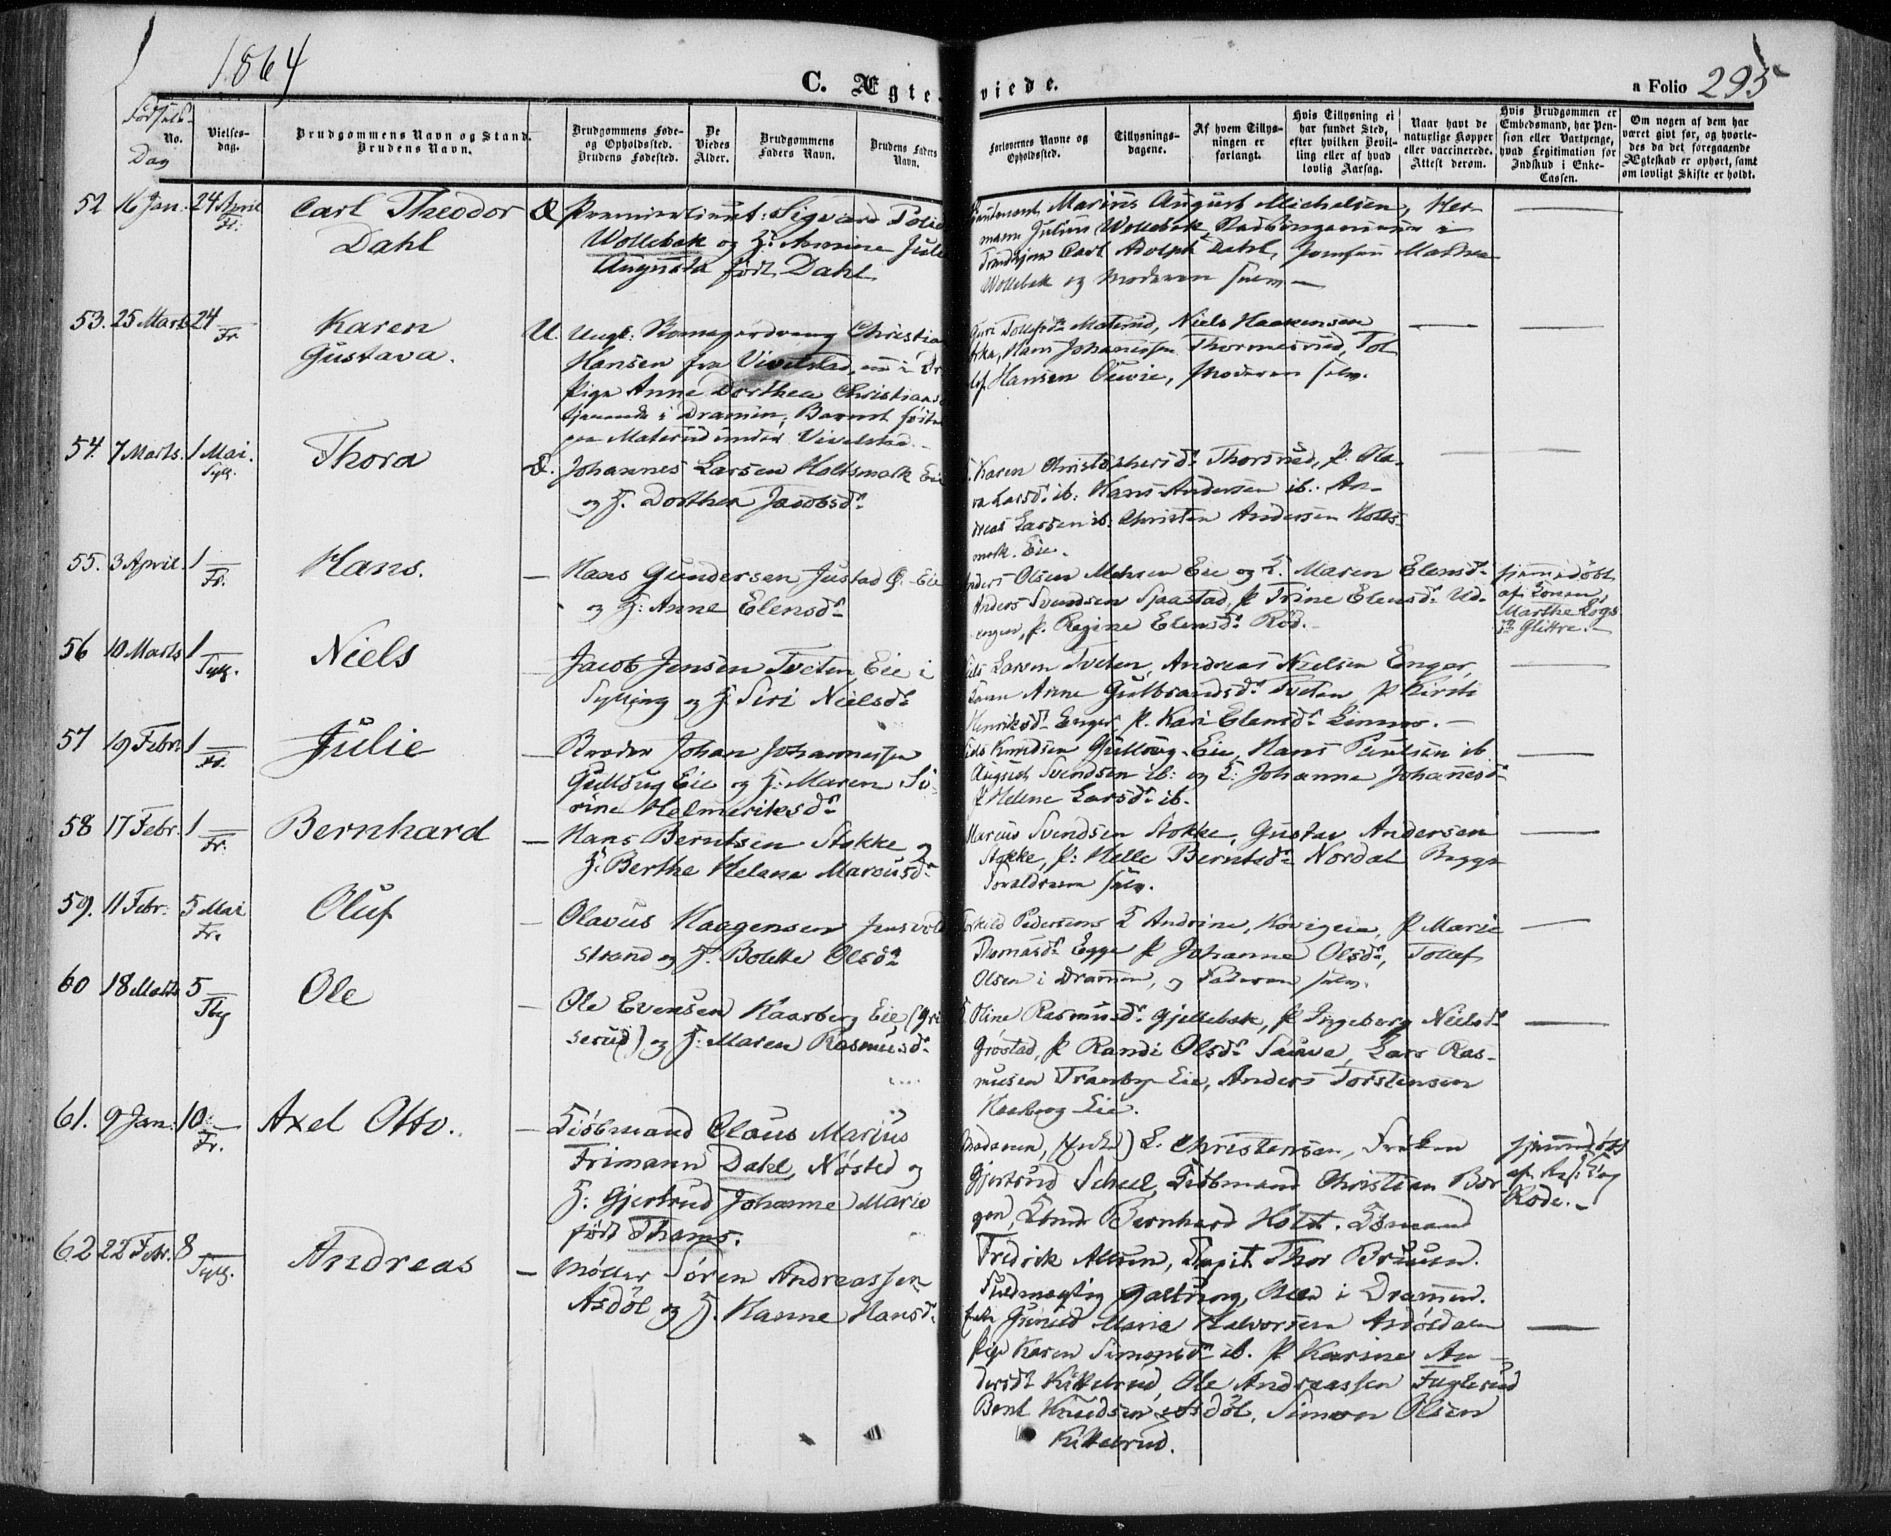 1864
C. Ægteviede.
a Folio 295
Fødsels-
Dag
No.
Vielses-
dag.
Brudgommens Navn og Stand.
Brudens Navn.
Brudgommens Føde-
og Opholdssted.
Brudens Fødested.
De
Viedes
Alder.
Brudgommens
Faders Navn.
Brudens Faders
Navn.
Forlovernes Navne og
Opholdssted.
Tillysnings-
dagene.
Af hvem Tillys-
ningen er
forlangt.
Hvis Tillysning ei
har fundet Sted,
efter hvilken Bevil-
ling eller af hvad
lovlig Aarsag.
Naar havt de
naturlige Kopper
eller vaccinerede.
Attest derom.
Hvis Brudgommen er
Embedsmand, har Pen-
sion eller Vartpenge,
hvad Legitimation for
Indskud i Enke-
Cassen.
Om nogen af dem har
været gift før, og hvorle-
des da det foregaaende
Ægteskab er ophørt, samt
om lovligt Skifte er holdt.
52 16 Jan. 24 April Fr.
Carl Theodor
Dahl
Æ
Premierlieut: Sigvard
Wollebæk og H: Annine Julie
Augusta født Dahl
Marius August Michelsen, Her-
mann Julius Wollebæk
Carl Adolph Dahl, Jomfru Mathea
Wollebæk og Moderen selv
53. 25 Marts 24 Fr
Karen
Gustava.
U.
Ungk: Christian
Hansen fra Vivelstad, nu i Dr
Pige Anne Dorthea
tjenende i Dramen, Barnet født
paa Materud under Vivelstad.
Materud, Niels Haakensen
Hans Johannesen Thormesrud, Tol
lef Hansen Moderen selv.
54. 7 Marts. 1 Mai. Sylg.
Thora
Æ.
Johannes Larsen Holtsmark Eie
og H. Dorthea Jacobsdr
Karen Christophersdr Thorsrud, P. Ola-
va Larsdr ib: Hans Andersen ib: An-
dreas Larsen ib: Christen Andersen Holts-
mark. Eie.
55. 3 April. 1 Fr.
Hans.
Hans Gundersen Justad Ø. Eie
og H: Anne Elensdr
Anders Olsen Mehren Eie og K. Maren Elensdr
Anders Svendsen Sjaastad, P Trine Elensdr Ud-
engen, P. Regine Elensdr Rød.
hjemmedøbt
af Konen
Marthe
Glittre.
56 10 Marts 1 Sylg.
Niels
Jacob Jensen Tveten, Eie i
Sylling og H. Siri Nielsdr
Niels Larsen Tveten, Andreas Nielsen Enger,
Konen Anne Gulbrandsdr Tveten P Kirsti
Henriksdr Enger P. Kari Elensdr
57 19 Febr. 1 Fr.
Julie
Johan Johannessen
Gullaug Eie og H: Maren Se-
rine Helmeriksdr
Knudsen Gullaug-Eie, Hans Paulsen ib
August Svendsen ib: og K: Johanne Johannesdr
P Helene Larsdr ib.
58 17 Febr. 1 Fr.
Bernhard
Hans Berntsen Stokke og
H: Berthe Helene Marcusdr
Marcus Svendsen Stokke, Gustav Andersen
Stokke, P: Helle Berntsdr Nordal Begge
Forældrene selv.
59. 11 Febr: 5 Mai Fr.
Oluf
Olavus Haagensen Jensvold
strand og H. Bolette Olsdr
Pedersens K Andrine, P Marie
Thomasdr Egge P Johanne Olsdr, Tollef
Olsen i Drammen, og Faderen selv.
60 18 Marts 5
Ole
Ole Evensen Kaarberg Eie (Gri
serud) og H: Maren Rasmusdr
K. Oline Rasmusdr Gjellebæk, P Ingeborg Nielsdr
Grøstad, P Randi Olsdr Lars Ras-
musen Tranby Eie, Anders Torstensen
Eie.
61. 9 Jan: 10 Fr.
Axel Otto.
Kiøbmand Claus Marius
Frimann Dahl, Nøsted og
H. Gjertrud Johanne Marie
født Thams.
Madamen, (Enke) L. Christensen, Frøken
Gjertrud Scheel, Kiøbmand Christian Bor-
gen, Bernhard Holst.
Fredrik Thor Bruusn.
Fuldmægtig Galtung, Alle i Drammen.
hjemmedøbt
af
Rode.
62 22 Febr. 8 Sylg.
Andreas
Møller Søren Andreassen
Asdøl og H. Hanne Hansdr
Maria Halvorsen Asdøsdalen
Pige Karen Simensdr ib. P Karine An-
dersdr Kittelrud, Ole Andreassen Fuglerud
Bent Knudsen Asdøl, Simon Olsen
Kittelrud.